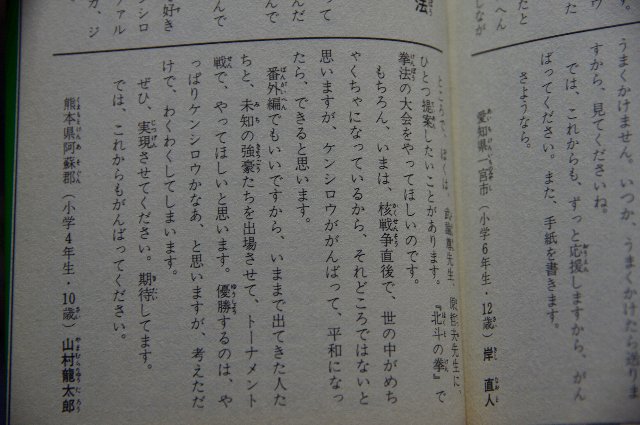 うまくかけません。いつか、うまくかけたら送りま
すから、見てくださいね。
では、これからも、ずっと応援しますから、がん
ばってください。また、手紙を書きます。
さようなら。
愛知県一宮市（小学6年生・12歳）岸 直人
ところで、ぼくは、武論尊先生、原哲夫先生に、
ひとつ提案したいことがあります。『北斗の拳』で
拳法の大会をやってほしいのです。
もちろん、いまは、核戦争直後で、世の中がめち
ゃくちゃになっているから、それどころではないと
思いますが、ケンシロウががんばって、平和になっ
たら、できると思います。
番外編でもいいですから、いままで出てきた人た
ちと、未知の強豪たちを出場させて、トーナメント
戦で、やってほしいと思います。優勝するのは、や
っぱりケンシロウかなあ、と思いますが、考えただ
けで、わくわくしてしまいます。
ぜひ、実現させてください。期待してます。
では、これからもがんばってください。
熊本県阿蘇郡（小学4年生・10歳）山村龍太郎